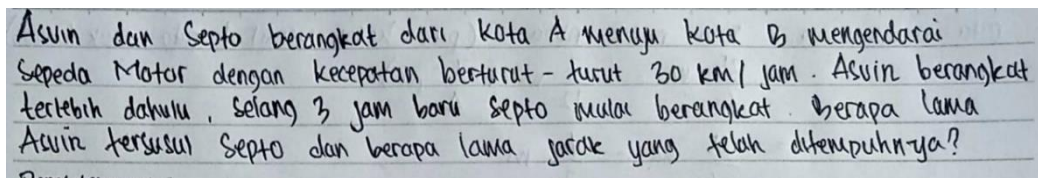 Asvin dan Septo berangkat dari kota A menuju kota B mengendarai
Sepeda Motor dengan kecepatan berturut - turut 30 km/jam. Asvin berangkat
terlebih dahulu, selang 3 jam baru septo mulai berangkat. Berapa lama
Asvin tersusul Septo dan berapa lama jarak yang telah ditempuhnya?